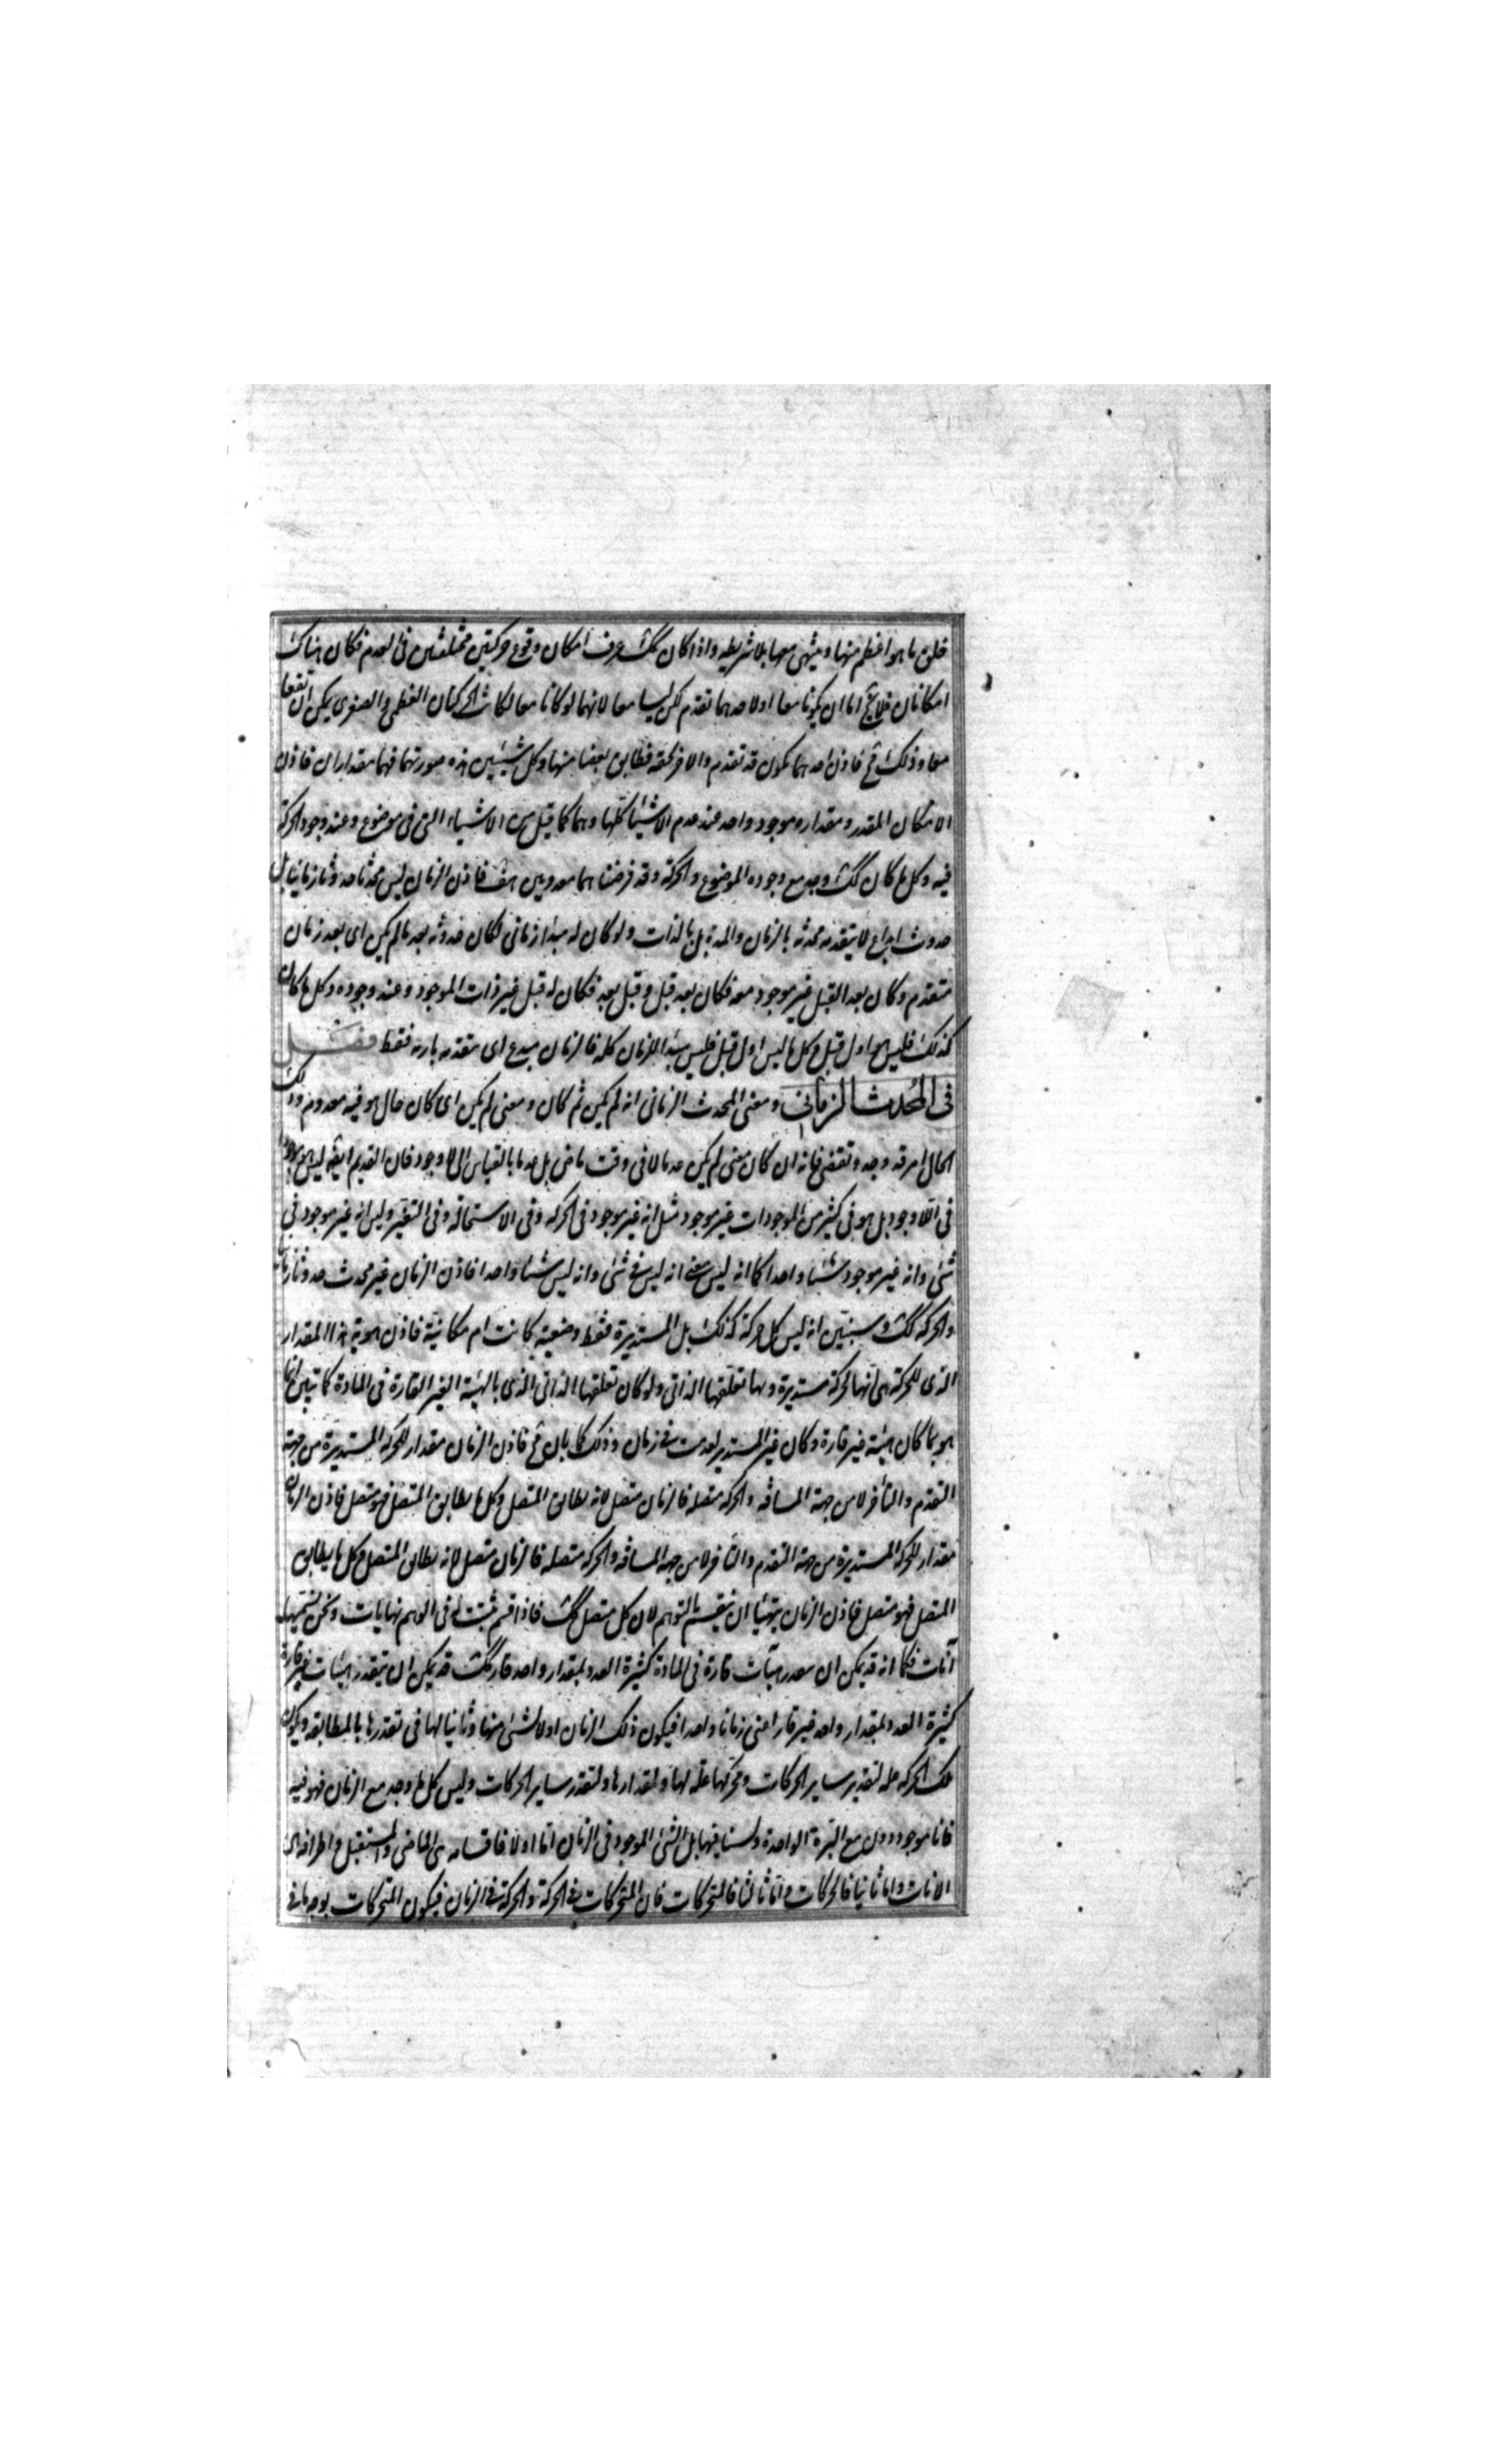 خلق ما هو اعظم منها وينتهى معها بلا شريطه واذا كان كك عرف امكان وقوع حركتين مختلفتين فى العدم فكان هناك
امكانان فلا يخ اما ان يكونا معا او لاحدهما تقدم لكن ليسا معا لانهما لو كانا معا لكانت الحركتان العظمى والصغرى يمكن ان تقعا
معا وذلك مح فاذن احدهما يكون قد تقدم والاخر لحقه فطابق بعضا منها وكل شيئين هذه صورتهما فهما مقداران فاذن
الامكان المقدر ومقداره موجود واحد عند عدم الاشياء كلها وهما كما قيل من الاشياء التى فى موضوع وعند وجود الحركة
فيه وكل ما كان كك وجد مع وجوده الموضوع والحركة وقد فرضناهما معدومين هف فاذن الزمان ليس محدثا حدوثا زمانيا بل
حدوث ابداع لا يتقدمه محدثه بالزمان والمدة بل بالذات ولو كان له مبدا زمانى لكان حدوثه بعد ما لم يكن اى بعد زمان
متقدم وكان بعد القبل غير موجود معه فكان بعد قبل وقبل بعد فكان له قبل غير ذات الموجود عند وجوده وكل ما كان
كذلك فليس اول قبل وكل ما ليس اول قبل فليس مبدا للزمان كله فالزمان مبدع اى متقدمه باريه فقط فصل
فى المحدث الزمانى ومعنى المحدث الزمانى انه لم يكن ثم كان ومعنى لم يكن اى كان حال هو فيه معدوم وذلك
الحال امر قد وجد وتقضى فانه ان كان معنى لم يكن عدما لا فى وقت ماض بل عدما بالقياس الى لا وجود فان القديم ايضا ليس هو موجودا
فى اللاوجود بل هو فى كثير من الموجودات غير موجود مثل انه غير موجود فى الحركه وفى الاستحاله وفى التغير وليس انه غير موجود فى
شئ وانه غير موجود شيئا واحدا كما انه ليس انه ليس فى شئ وانه ليس شيئا واحدا فاذن الزمان غير محدث حدوثا زمانيا
والحركه كك وسنبين انه ليس كل حركة كذلك بل المستديرة فقط وضعية كانت ام مكانية فاذن هوية هذا المقدار
الذى للحركة هى انها لحركة مستديرة وبها تعلقها الذاتى ولو كان تعلقها الذاتى الذى بالهيئة الغير القارة فى المادة كما تبين انما
هو بما كان هيئة غير قارة وكان غير المستدير لعدمت فى زمان وذلك كما بان مح فاذن الزمان مقدار للحركة المستديرة من جهة
التقدم والتاخر لا من جهة المسافه والحركه متصله فالزمان متصل لانه يطابق المتصل وكل ما يطابق المتصل فهو متصل فاذن الزمان
مقدار للحركة المستديرة من جهة التقدم والتاخر لا من جهة المسافه والحركه متصله فالزمان متصل لانه يطابق المتصل وكل ما يطابق
المتصل فهو متصل فاذن الزمان يتهيا ان ينقسم بالتوهم لان كل متصل كك فاذا قسم ثبتت له فى الوهم نهايات ونحن نسميها
آنات فكما انه قد يمكن ان هيآت قارة فى المادة كثيرة العدد بمقدار واحد قار كك قد يمكن ان يتقدر هيئات غير قارة
كثيرة العدد بمقدار واحد غير قار اعنى زمانا واحدا فيكون ذلك الزمان اولا لشئ منها وثانيا لها فى تقدرها بالمطابقه ويكون
تلك الحركه عله لتقدير ساير الحركات ومحركها علة لها ولمقدارها ولتقدر ساير الحركات وليس كل ما وجد مع الزمان فهو فيه
فانا موجودون مع البرة الواحدة ولسنا فيها بل الشئ الموجود فى الزمان اما اولا فاقسامه وهى الماضى والمستقبل واطرافه وهى
الانات واما ثانيا فالحركات واما ثالثا فالمتحركات فان المتحركات فى الحركة والحركة فى الزمان فيكون المتحركات بوجه ما فى